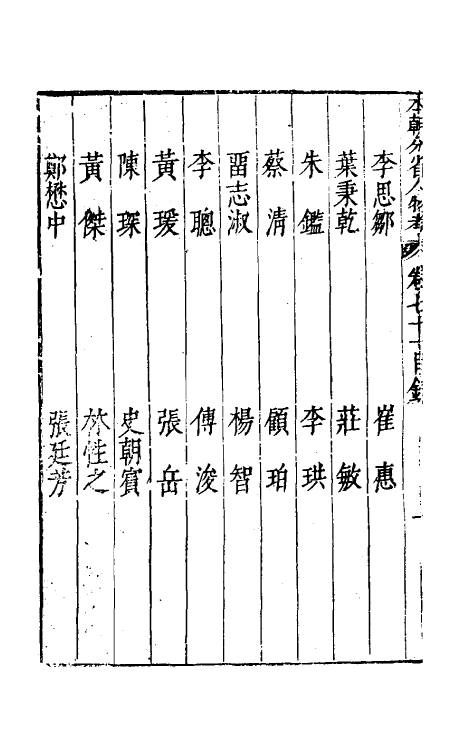 本朝分省人物考 卷七十一目錄
李思鄒 崔惠
葉秉乾 莊敏
朱鑑 李珙
蔡清 顧珀
畱志淑 楊智
李聰 傅浚
黃瑗 張岳
陳琛 史朝賓
黃傑 林性之
鄭懋中 張廷芳